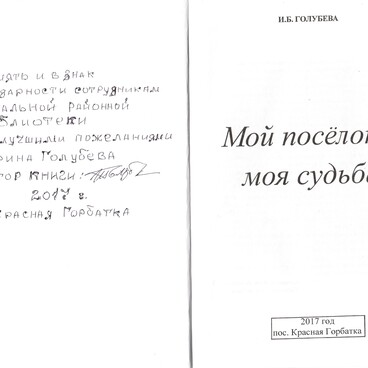 ять и в знак
дарности сотрудникам
альной районной
блиотеки
лучшими пожеланиями
рина Голубева
тор книги:
2017 г.
красная Горбатка
И.Б. ГОЛУБЕВА
Мой посёло
моя судьба
2017 год
пос. Красная Горбатка